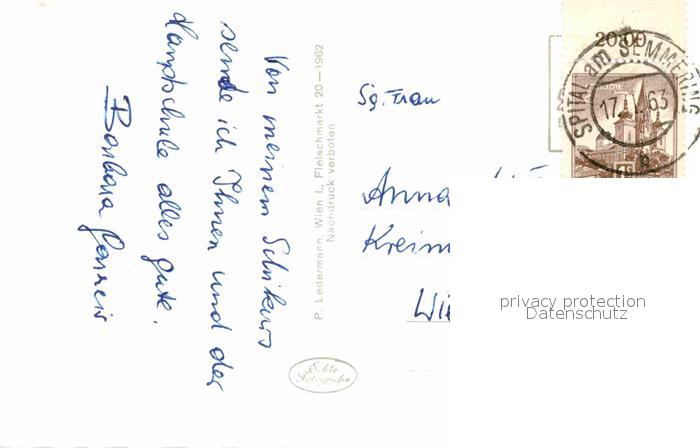 Von meinem Schikurs
sende ich Ihnen und der
Hauptschule alles gute.
Barbara
P. Ledermann, Wien I., Fleischmarkt 20—1962
Nachdruck verboten
Echte
Fotografie
Sg. Frau
Anna
Kreim
Wie
20·00
SPITAL am SEMMERING
17. 63
privacy protection
Datenschutz